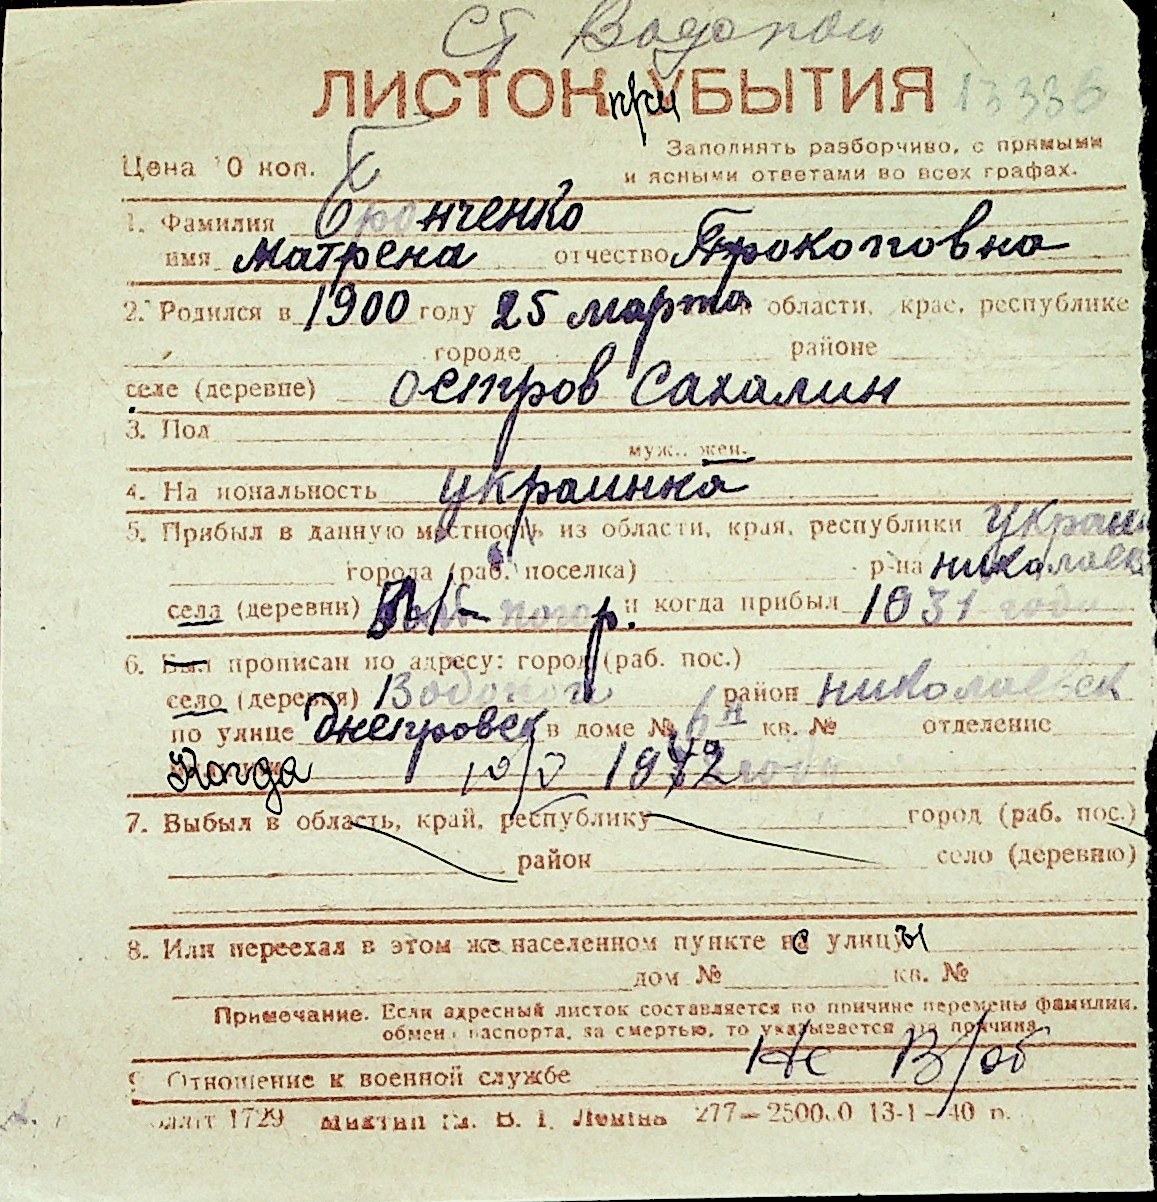 Ст Водопой
ЛИСТОК при УБЫТИЯ 13336
Цена 10 коп. Заполнять разборчиво, с прямыми
и ясными ответами во всех графах.
1. Фамилия Бронченко
имя Матрена отчество Прокоповна
2. Родился в 1900 году 25 марта в области, крае, республике
городе районе
селе (деревне) остров Сахалин
3. Пол
муж., жен.
4. Национальность украинка
5. Прибыл в данную местность из области, края, республики Украи
города (раб. поселка) р-на николаев
села (деревни) и когда прибыл 1931 году
6. Был прописан по адресу: город (раб. пос.)
село (деревня) Водопой район николаевск
по улице Днепровск в доме № 6 н кв. № отделение
Когда 1942 году
7. Выбыл в область, край, республику город (раб. пос.)
район село (деревню)
8. Или переехал в этом же населенном пункте с улицы
дом № кв. №
Примечание. Если адресный листок составляется по причине перемены фамилии,
обмена паспорта, за смертью, то указывается эта причина
9. Отношение к военной службе Не В/об
1729 В. І. Леніна 277—25000 13-1—40 р.